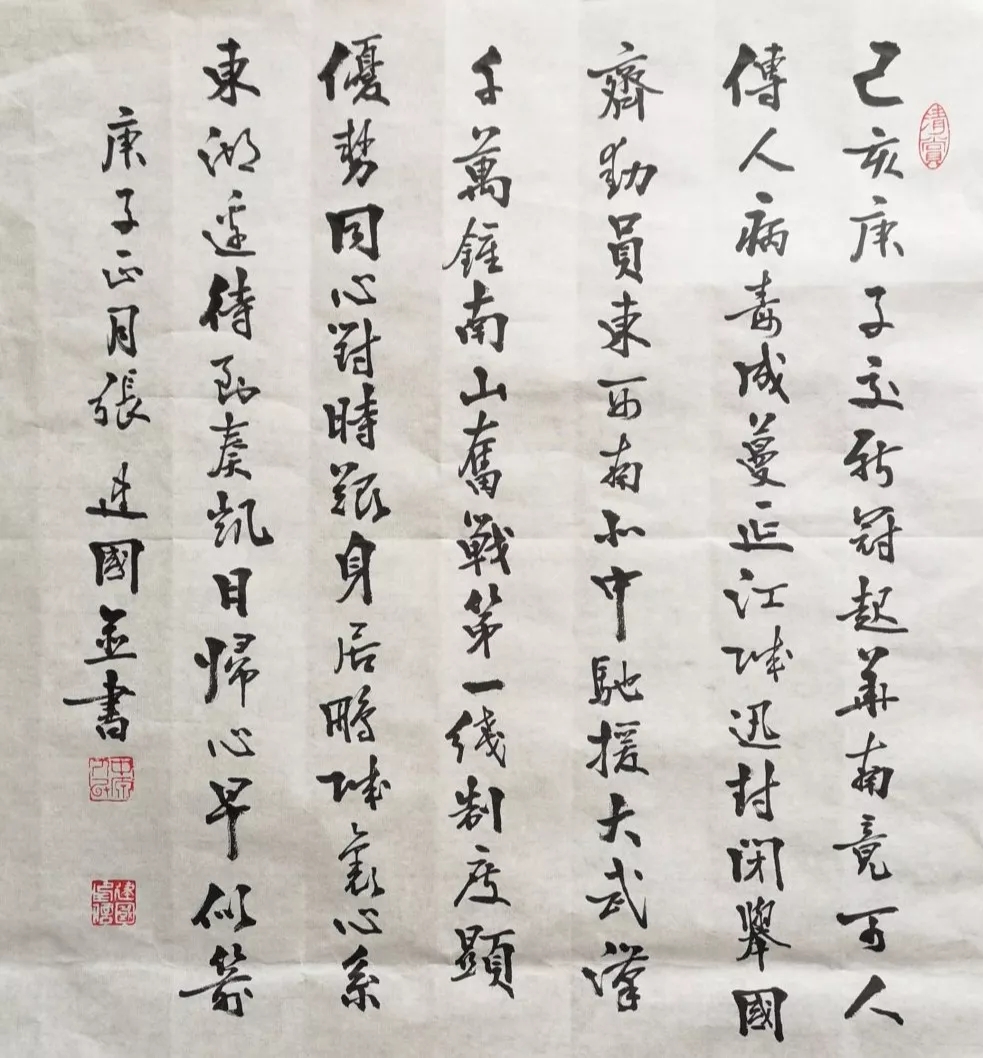 清賞
己亥庚子交新冠起華南竟可人
傳人病毒成蔓延江城迅封閉舉國
齊動員東西南北中馳援大武漢
千萬鍾南山奮戰第一綫制度顯
優勢同心對時艱身居鵬城裏心系
東湖邊待到奏凱日歸心早似箭
庚子正月張建國並書